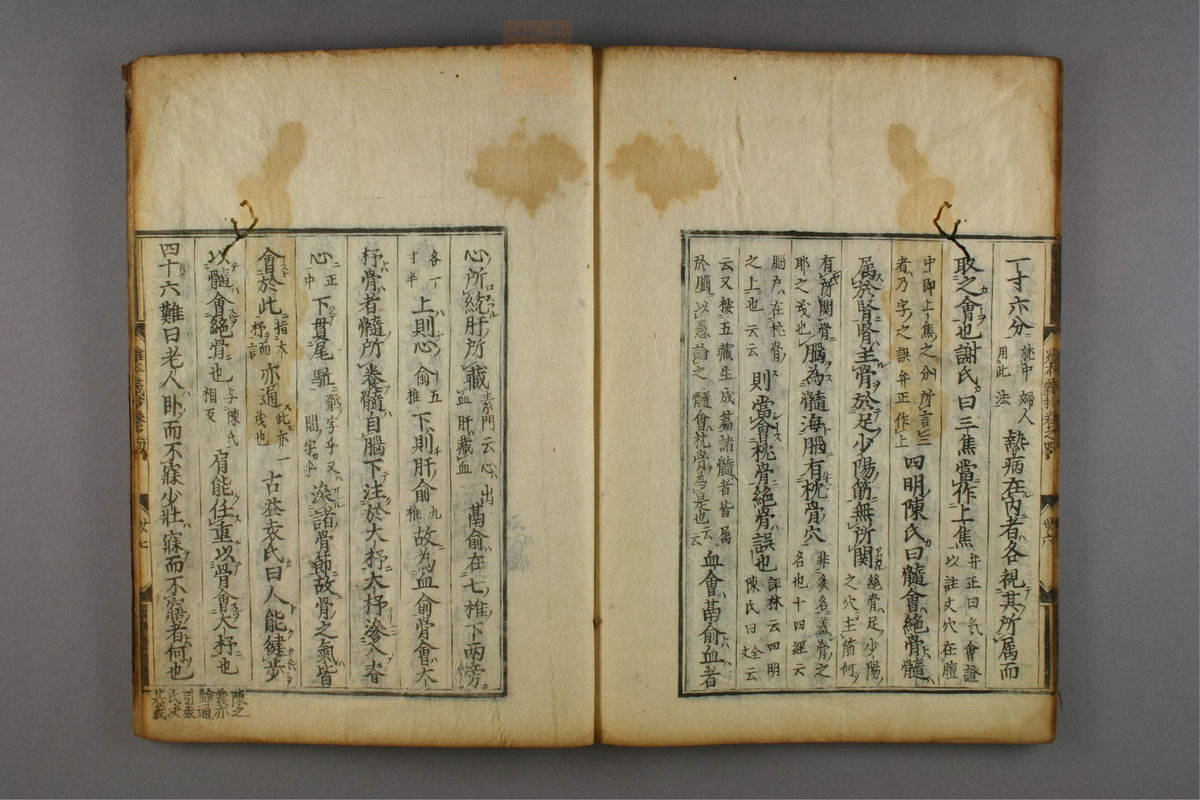 一寸六分 蛻中婦人用此法 熱病在内者各視其所属而
取之會也謝氏曰三焦當作上焦 弁正曰気會證以註文穴在膻
中即上焦之分所言三者乃字之誤弁正作上 四明陳氏曰髓會絶骨髓
属於腎腎主骨於足少陽筋無所関 絶骨足少陽之穴主筋何
有所関骨耶之茂也 脳為髓海脳有枕骨穴 非矣名蓋骨之名也十四經云
脳户在枕骨之上也云云 則當會枕骨絶骨誤也 評林云四明陳氏曰全文云
云又按五藏生成篇諸髓者皆属於脳以愚論之髓會枕骨為是也云云 血會鬲俞血者
心所統肝所藏 素問云心出血肝藏血 鬲俞在七椎下兩傍
各一寸半 上則心俞 五椎 下則肝俞 九椎 故為血俞骨會大
杼骨者髓所養髓自脳下注於大杼大杼滲入脊
心 正中 下貫尾骶 骶字乎又閭字乎 滲諸骨節故骨之氣皆
會於此 指大杼而言 亦通 此亦一茂也 古益袁氏曰人能健步
以髓會絶骨也 与陳氏相反 肩能任重以骨會大杼也
四十六難曰老人臥而不寐少壮寐而不寤者何也
陳之
義亦
雖通
引袁
氏决
其義